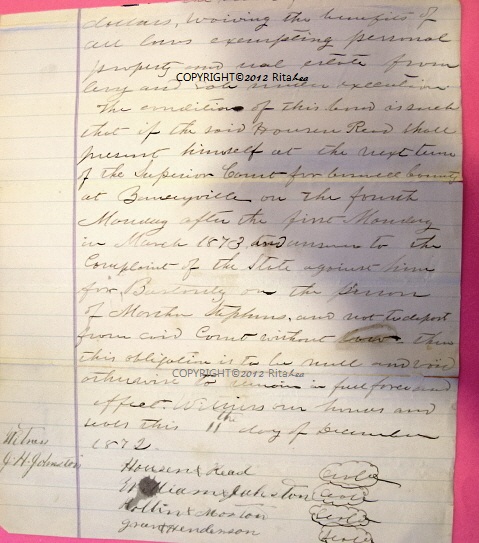 dollars, waiving the benefits of
all laws exempting personal
property and real estate from
COPYRIGHT©2012 RitaLea
levy and sale under execution
The condition of this bond is such
that if the said Housen Read shall
present himself at the next term
of the Superior Court for
at on the fourth
Monday after the first Monday
in March 1873, and answer to the
Complaint of the State against him
for Bastardy on the person
of Martha Stephens, and not to depart
from said Court without then
this obligation is to be null and void
COPYRIGHT©2012 RitaLea
otherwise to remain in full force and
effect. Witness our hands and
seals this 11th day of December
1872.
Witness
J. H. Johnston
Housen x Read Seal
William x Johston Seal
x Seal
Grant Henderson Seal